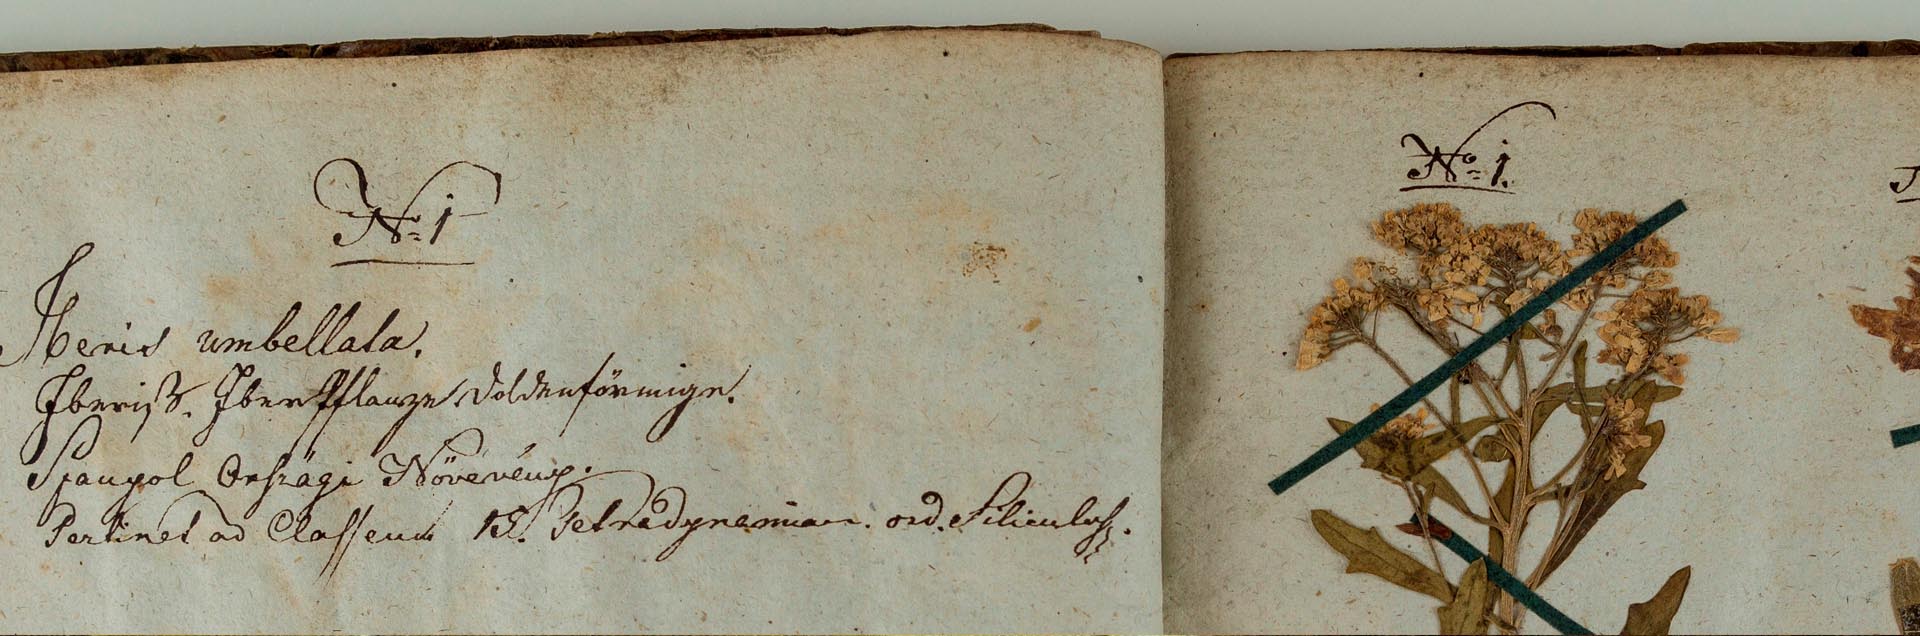 No 1
Iberis umbellata.
Iberiss. Iberpflanze Doldenförmige.
Spanyol Országi Növevény.
Pertinet ad Classem 15. Tetradynamiae. ord. Siliculos.
No 1.